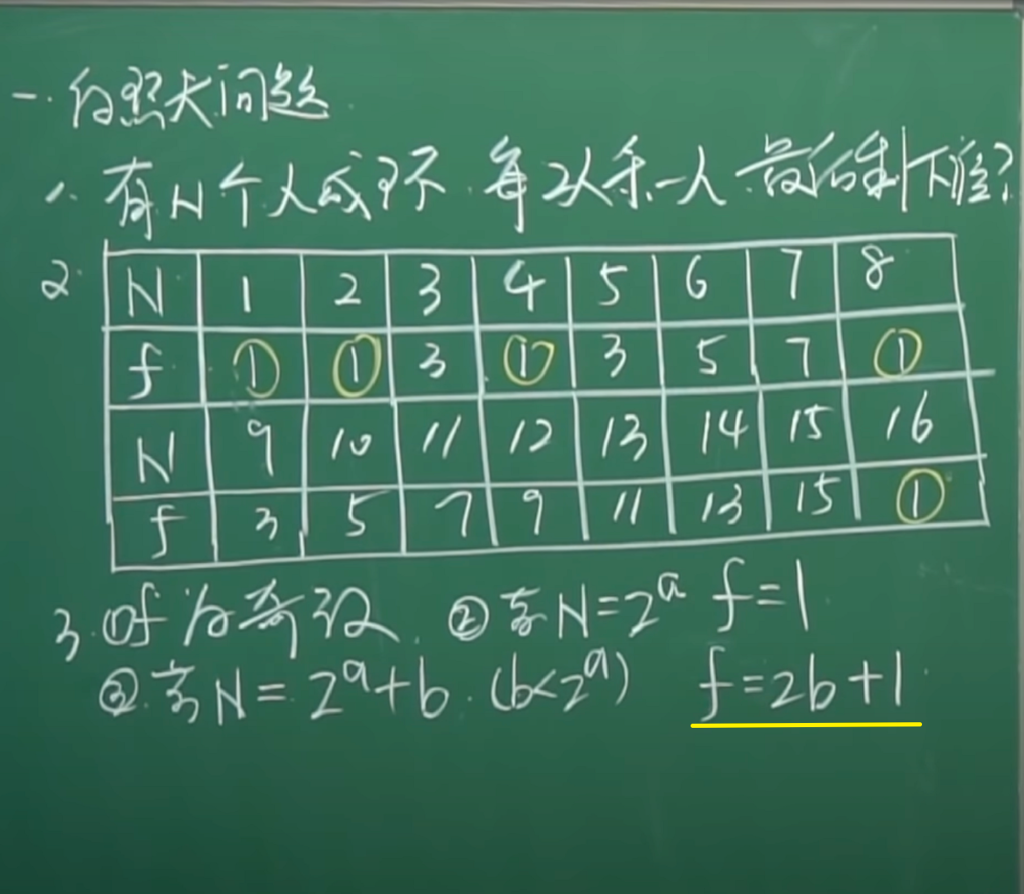 一. 约瑟夫问题.
1. 有N个人成环. 每2人杀一人 最后剩下谁?
2. N 1 2 3 4 5 6 7 8
f ① ① 3 ① 3 5 7 ①
N 9 10 11 12 13 14 15 16
f 3 5 7 9 11 13 15 ①
3. ①f为奇数. ②若N=2ᵃ f=1
③若N=2ᵃ+b. (b<2ᵃ) f=2b+1.